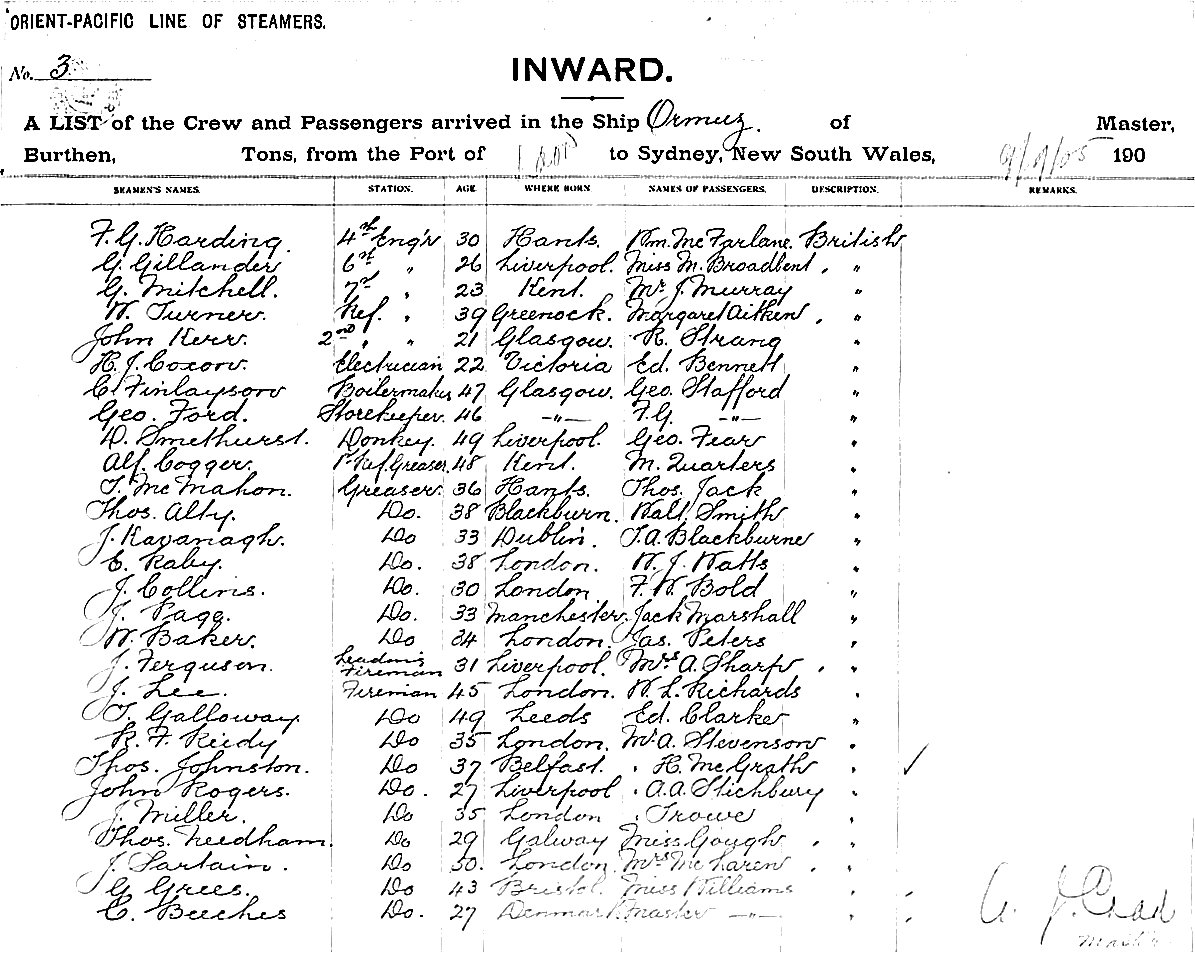 ORIENT-PACIFIC LINE OF STEAMERS.
No. 3
INWARD.
A LIST of the Crew and Passengers arrived in the Ship Ormuz. of Master,
Burthen, Tons, from the Port of to Sydney, New South Wales, 9/9/05 190
SEAMEN'S NAMES. STATION. AGE WHERE BORN NAMES OF PASSENGERS. DESCRIPTION. REMARKS.
F. G. Harding. 4th Eng'r 30 Hants. Wm. McFarlane. British
G. Gillander 6th " 26 Liverpool. Miss M. Broadbent. "
G. Mitchell. 7th " 23 Kent. Mr. J. Murray "
W. Turner. Ref. " 39 Greenock. Margaret Aitken. "
John Kerr. 2nd " " 21 Glasgow. R. Strang "
H. J. Coxon. Electrician 22 Victoria Ed. Bennett "
C. Finlayson Boilermaker 47 Glasgow. Geo. Stafford "
Geo. Ford. Storekeeper. 46 —"— F. G. —"— "
D. Smethurst. Donkey. 49 Liverpool. Geo. Fear "
Alf. Cogger. Ref. Greaser. 48 Kent. M. Quarters "
T. McMahon. Greaser. 36 Hants. Thos. Jack "
Thos. Alty. Do. 38 Blackburn. Walt. Smith "
J. Kavanagh. Do 33 Dublin. T. A. Blackburne "
E. Raby. Do. 38 London. W. J. Watts "
J. Collins. Do. 30 London F. W. Bold "
J. Page. Do. 33 Manchester. Jack Marshall "
W. Baker. Do 34 London. Jas. Peters "
J. Ferguson. Leading Fireman 31 Liverpool. Mrs. A. Sharp. "
J. Lee. Fireman 45 London. W. L. Richards "
T. Galloway. Do 49 Leeds Ed. Clarke "
R. F. Reedy Do 35 London. Mr. A. Stevenson "
Thos. Johnston. Do 37 Belfast. " H. McGrath " ✓
John Rogers. Do. 27 Liverpool " A. A. Stichbury "
J. Miller. Do 35 London " Trowe "
Thos. Needham. Do 29 Galway Miss Gough. "
J. Sartain. Do 50. London. Mrs. McLaren. "
G. Grees. Do 43 Bristol. Miss Williams "
C. Beeches Do. 27 Denmark Master —"— "